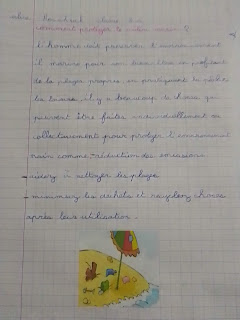 comment protéger le milieu marin ?
L'homme doit preserver l'environnement
marin pour son bien être en profitant
de la plage propres en pratiquant la pêche
il y a beaucoup de choses qui
peuvent être faites individuellement ou
collectivement pour protéger l'environnement
marin comme - réduction des emissions
- à nettoyer les plages
- les déchets et recyclons choses
après leur utilisation.